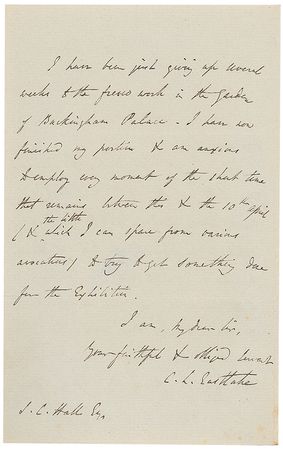 I have been just giving up several
weeks to the fresco work in the Garden
of Buckingham Palace - I have now
finished my portion & am anxious
to employ every moment of the short time
that remains between this & the 10th April
(& the little which I can spare from various
avocations) to try to get something done
for the Exhibition.
I am, my dear Sir,
Your faithful & obliged Servant
C. L. Eastlake
S. C. Hall Esq